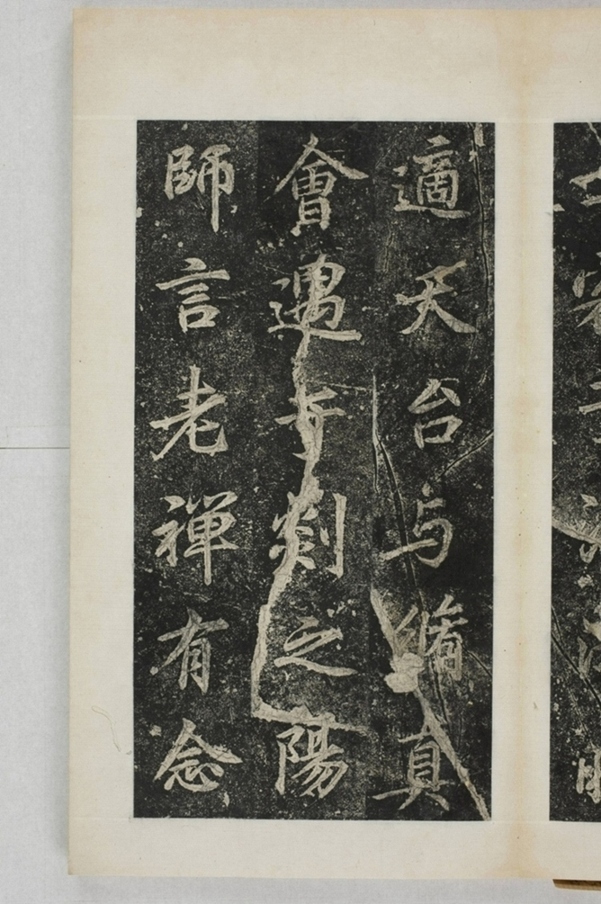 適天台与脩真
會遇于剡之陽
師言老禪有念